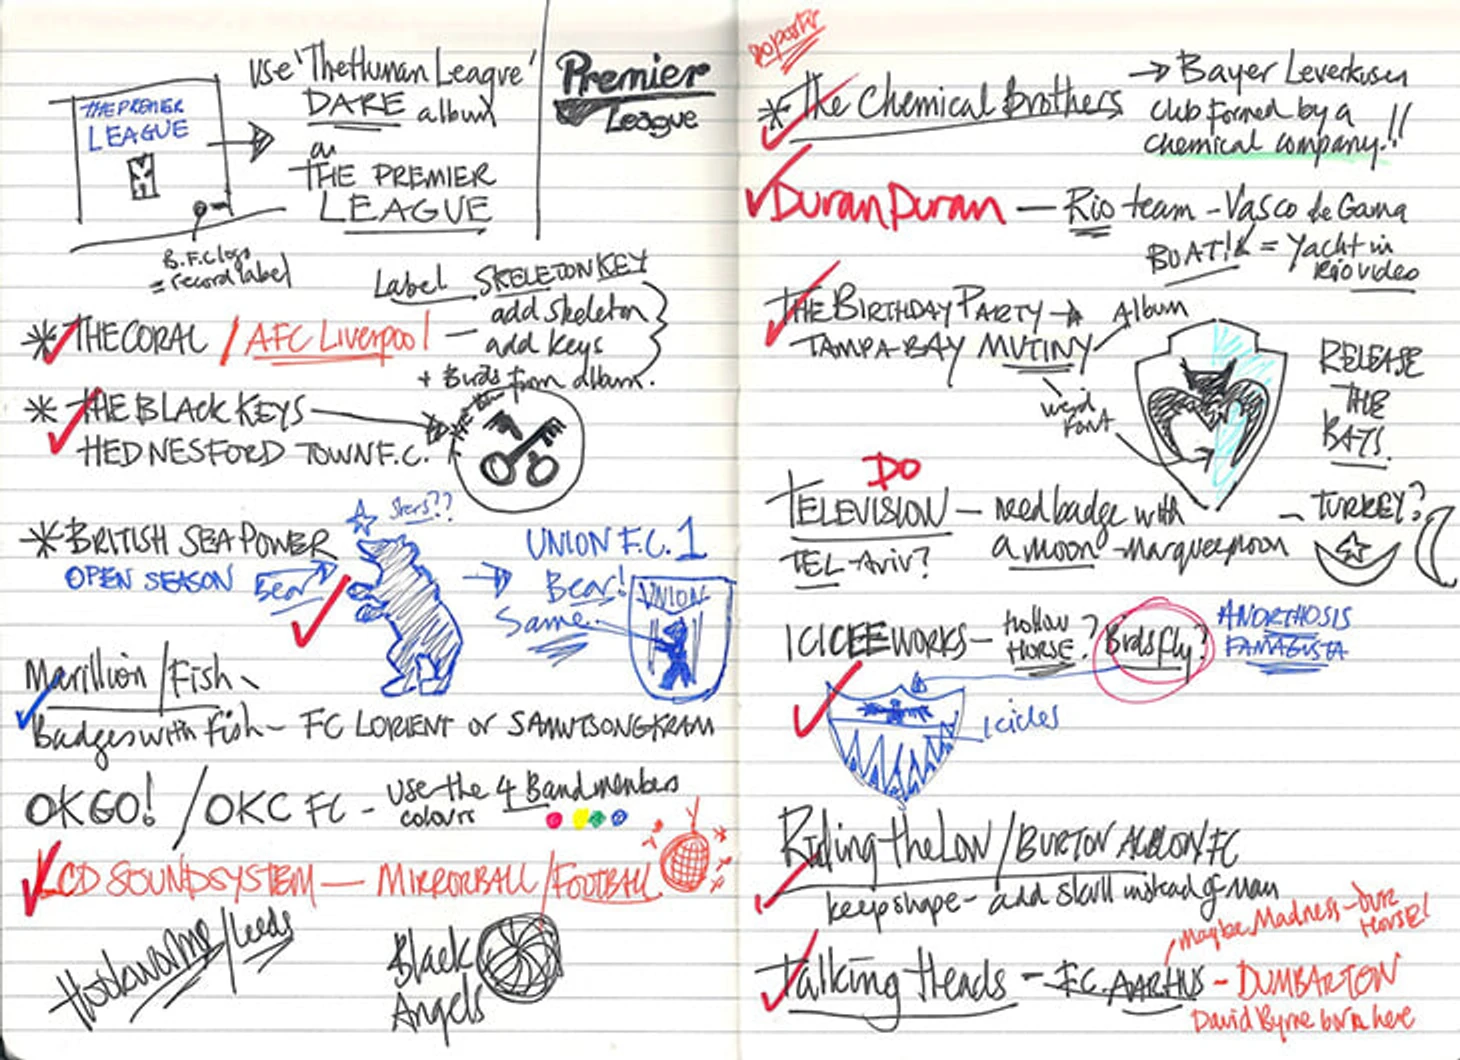 use 'The Human League'
DARE album
as
THE PREMIER
LEAGUE
THE PREMIER
LEAGUE
B.F.C logo
= record label
Premier
League
Label SKELETON KEY
add skeleton
add keys
+ Birds from album.
* THE CORAL / AFC Liverpool —
* THE BLACK KEYS
HEDNESFORD TOWN F.C.
* BRITISH SEA POWER
OPEN SEASON Bear
Stars??
UNION F.C. 1
Bear!
Same
UNION
Marillion / Fish
Badges with Fish - FC LORIENT or SAMUTSONGKRAM
OK GO! / OKC FC - use the 4 Band members
colours
LCD SOUNDSYSTEM — MIRRORBALL / FOOTBALL
Hookworms / Leeds
Black
Angels
Do poster
* The Chemical Brothers → Bayer Leverkusen
club formed by a
chemical company!!
Duran Duran — Rio team - Vasco de Gama
BOAT! = Yacht in
Rio video
THE BIRTHDAY PARTY → Album
TAMPA-BAY MUTINY
weird
font
RELEASE
THE
BATS.
DO
TELEVISION — need badge with - TURKEY?
TEL-Aviv? a moon - marquee moon
ICICLE WORKS — Hollow
HORSE? Birds fly? ANORTHOSIS
FAMAGUSTA
Icicles
Riding the Low / BURTON ALBION FC
keep shape - add skull instead of man
Maybe Madness - our
Horse!
Talking Heads - F.C. AARHUS - DUMBARTON
David Byrne born here